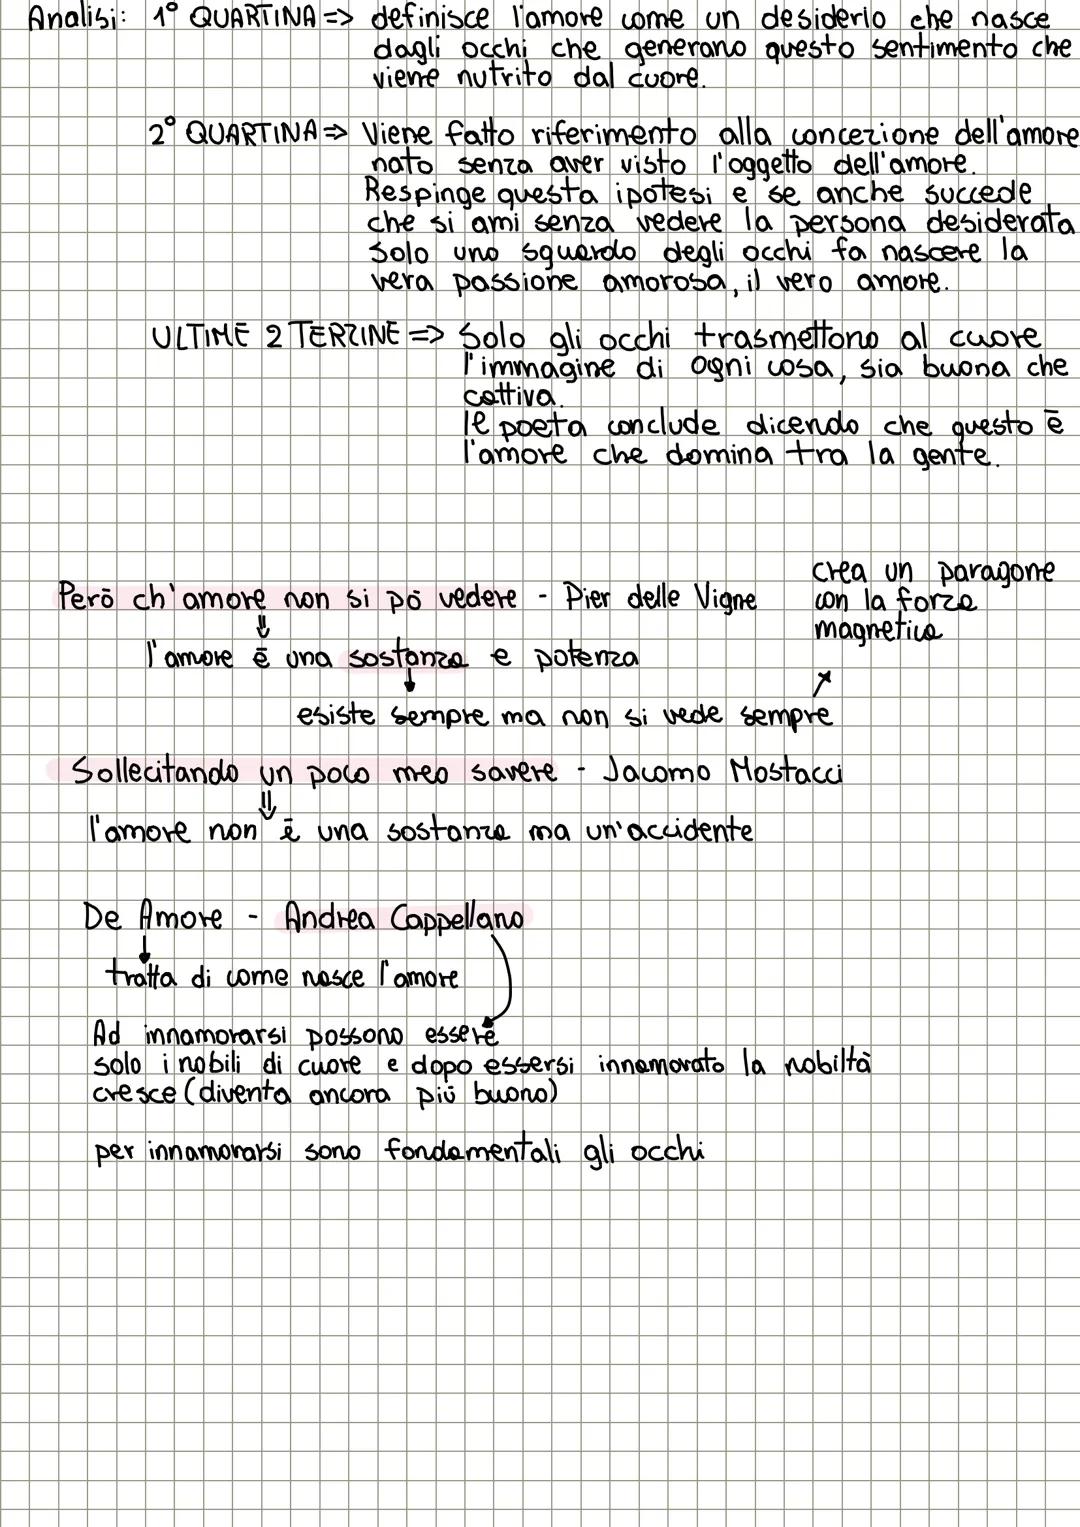 Analisi: 1° QUARTINA => definisce l'amore come un desiderio che nasce
dagli occhi che generano questo sentimento che
viene nutrito dal cuore.
2° QUARTINA => Viene fatto riferimento alla concezione dell'amore
nato senza aver visto l'oggetto dell'amore.
Respinge questa ipotesi e se anche succede
che si ami senza vedere la persona desiderata
solo uno sguardo degli occhi fa nascere la
vera passione amorosa, il vero amore.
ULTIME 2 TERZINE => Solo gli occhi trasmettono al cuore
l'immagine di ogni cosa, sia buona che
cattiva.
Ie poeta conclude dicendo che questo è
l'amore che domina tra la gente.
Però ch'amore non si pò vedere - Pier delle Vigne
crea un paragone
con la forza
magnetica
l'amore è una sostanza e potenza
esiste sempre ma non si vede sempre
Sollecitando un poco meo savere - Jacomo Mostacci
l'amore non è una sostanza ma un'accidente
De Amore - Andrea Cappellano
tratta di come nasce l'amore
Ad innamorarsi possono essere
solo i nobili di cuore e dopo essersi innamorato la nobiltà
cresce (diventa ancora più buono)
per innamorarsi sono fondamentali gli occhi